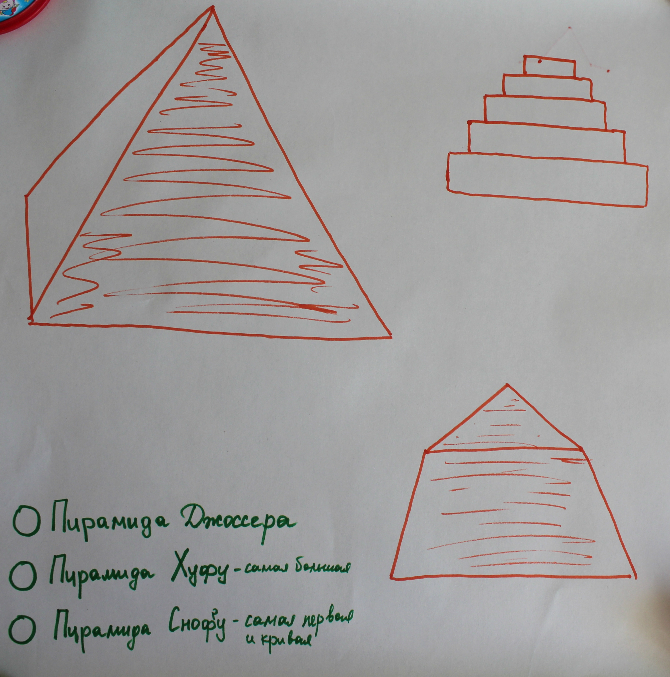 Пирамида Джоссера
Пирамида Хуфу - самая большая
Пирамида Снофу - самая первая
и кривая